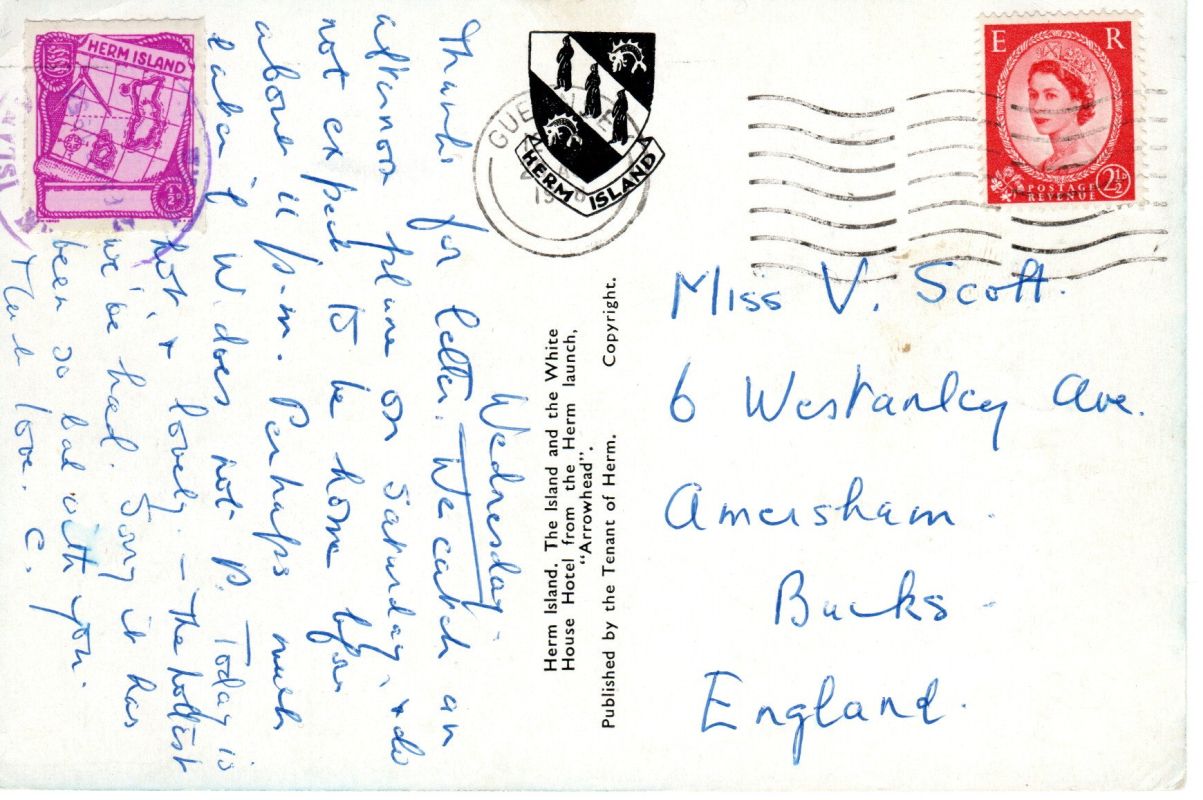 HERM ISLAND
½
Wednesday.
Thanks for letter. We catch an
afternoon plane on Saturday, & do
not expect to be home before
above 11 p.m. Perhaps much
later if W. does not P. Today is
hot & lovely. – The hottest
we've had. Sorry it has
been so bad with you.
Much love. C.
HERM ISLAND
GUERNSEY
Herm Island. The Island and the White
House Hotel from the Herm launch,
"Arrowhead".
Published by the Tenant of Herm. Copyright.
E R
POSTAGE
REVENUE
2½D
Miss V. Scott.
6 Westanley Ave.
Amersham.
Bucks.
England.